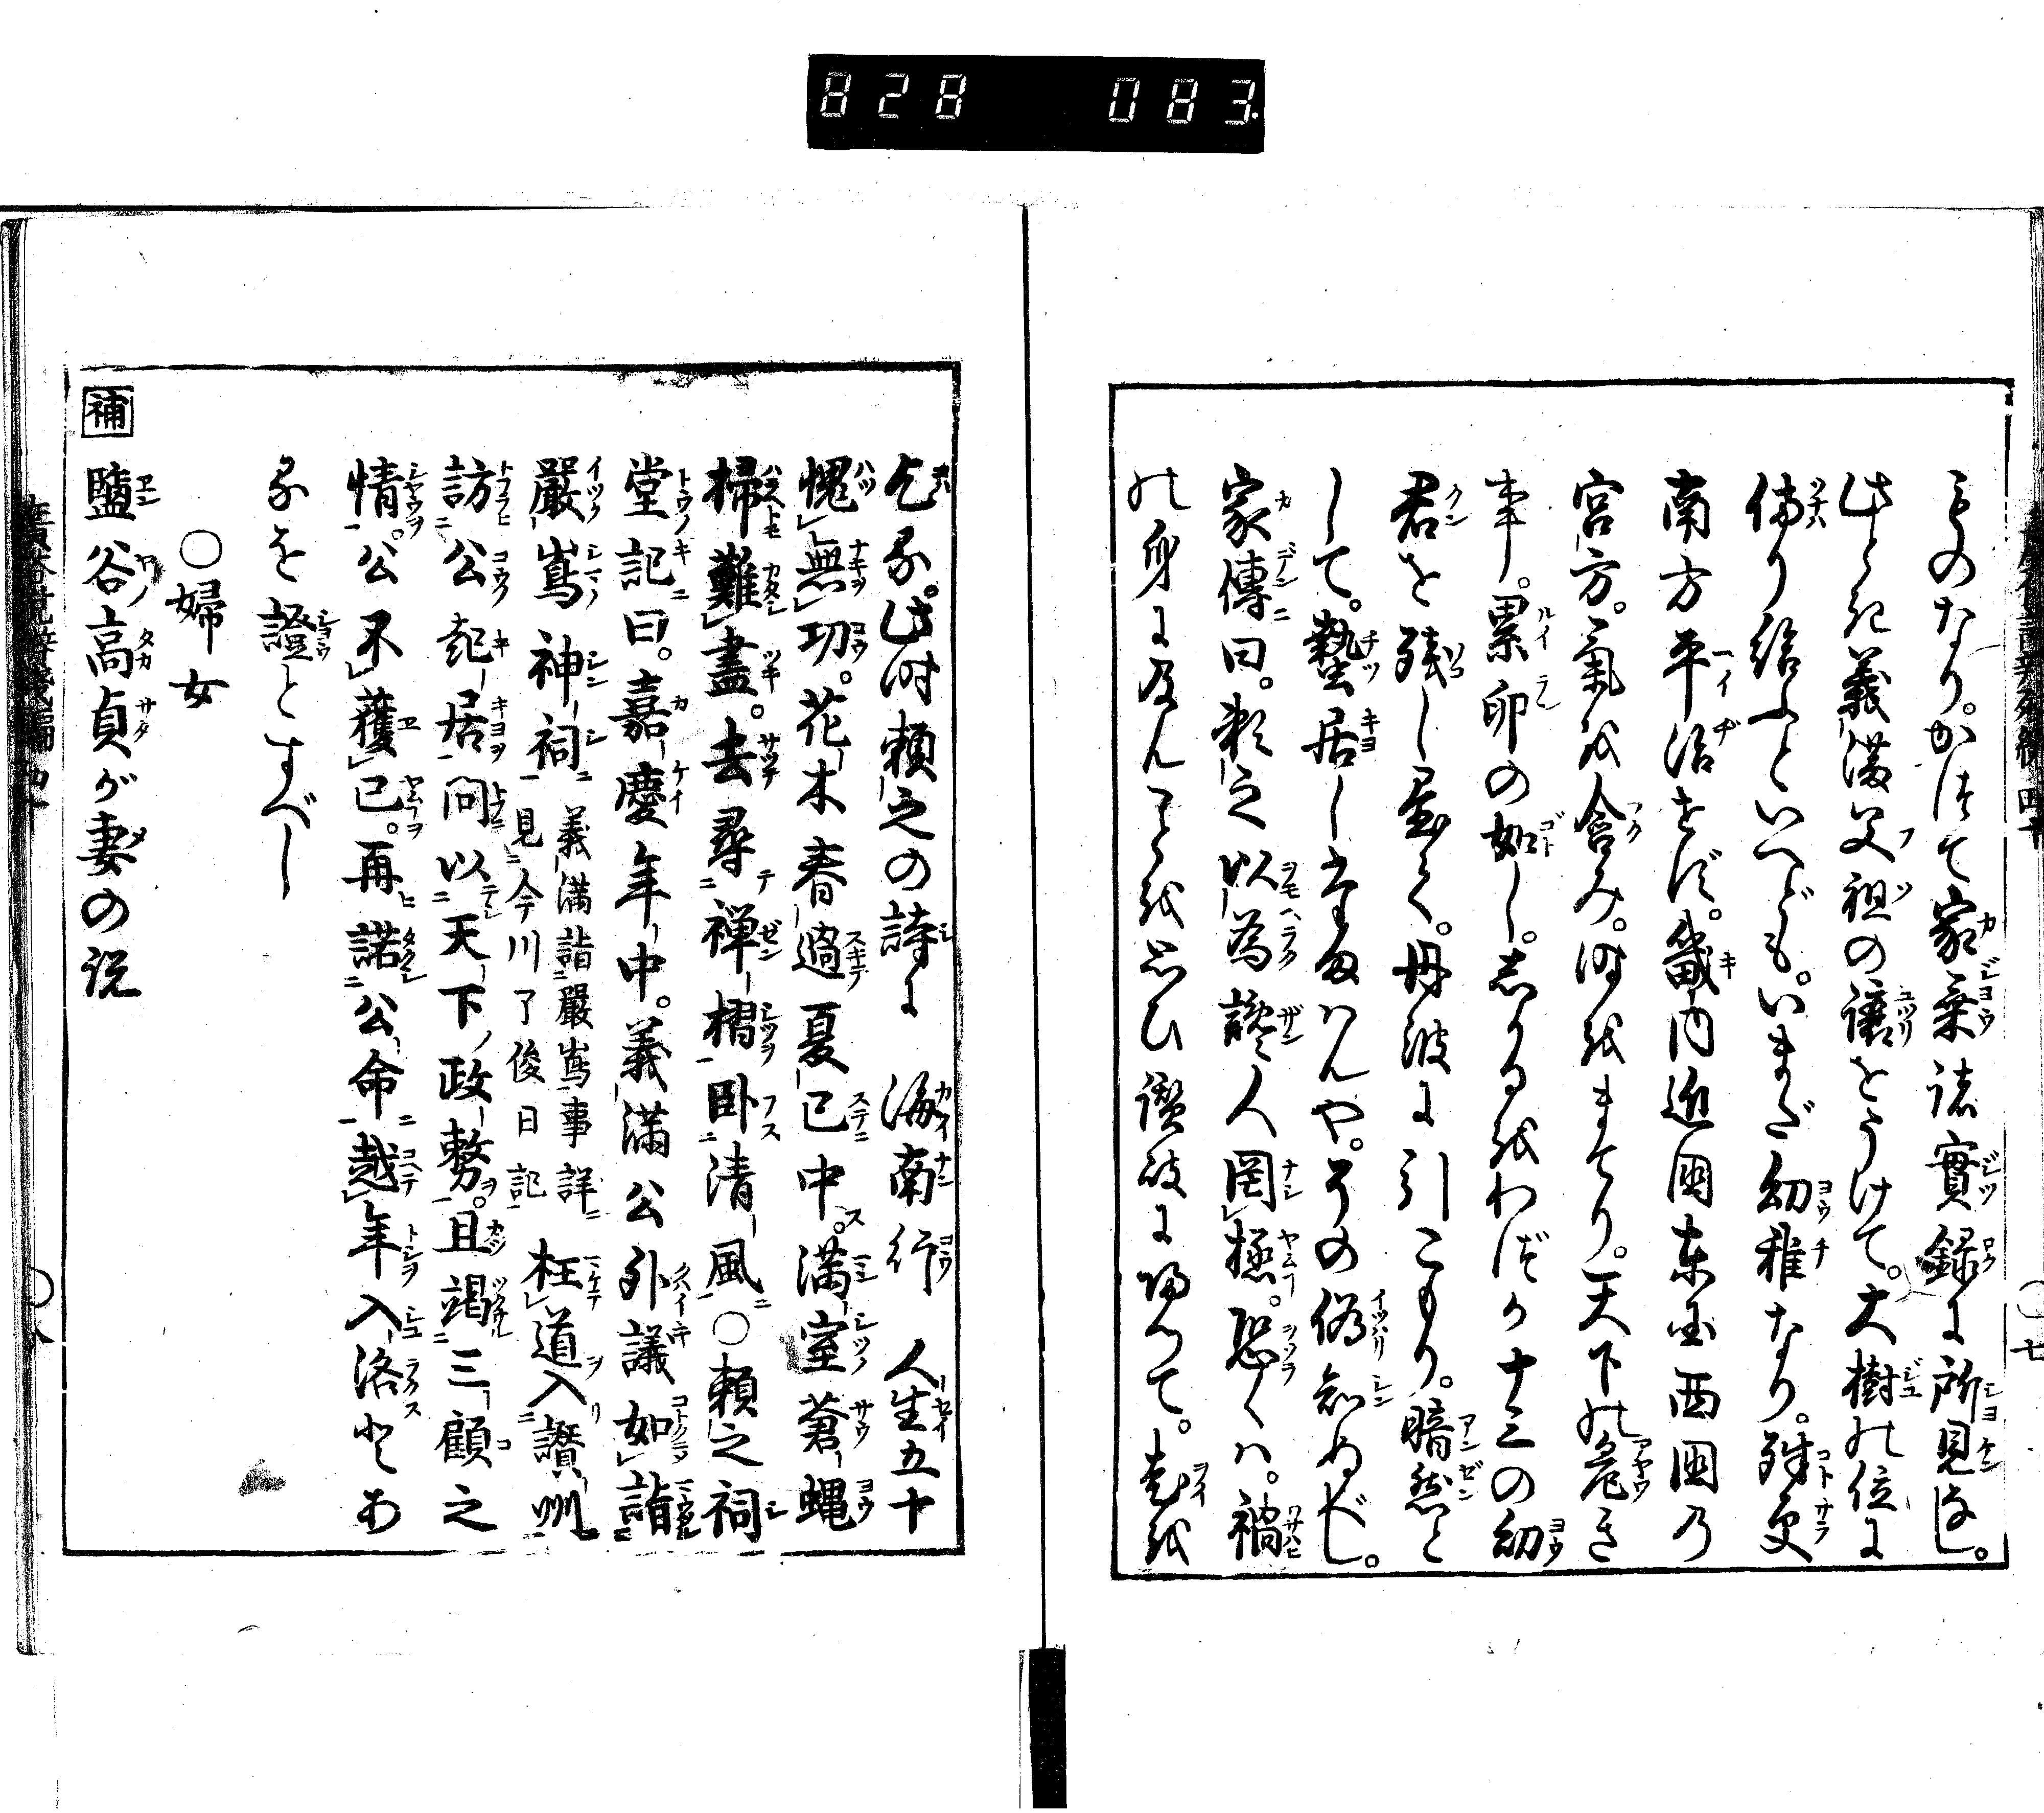 828 083
ものなり。かつて家乗諸實録に所見なし。
此とき義満父祖の譲をうけて。大樹の位に
備り給ふといへども。いまだ幼稚なり。殊更
南方平治せず。畿内近国東国西国乃
宮方。氣を含み。時をまてり。天下の危き
事。累卵の如し。しかるをわづか十三の幼
君を残し置て。丹波に引こもり。暗然と
して。蟄居し給はんや。その偽知ぬべし。
家傳曰。頼之以為讒人罔極。恐くハ。禍
の身に及んことを思ひ讃岐に帰つて。老を
乞ふ。此時頼之の詩に 海南行 人生五十
愧無功。花木春過夏已中。満室蒼蝿
掃難盡。去尋禅榻臥清風。〇頼之祠
堂記曰。嘉慶年中。義満公外議如詣
嚴嶌神祠 義満詣嚴嶌事詳
見今川了俊日記 枉道入讃州
訪公起居問以天下政務。且竭三顧之
情。公不獲已。再諾公命越年入洛とあ
るを證とすべし
〇婦女
補 鹽谷高貞が妻の説